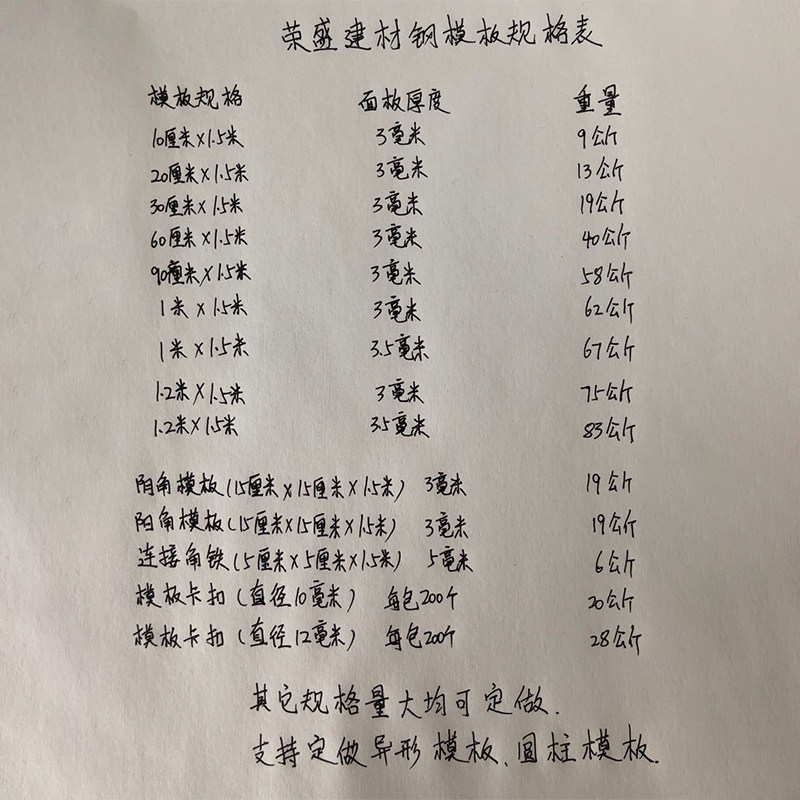 荣盛建材钢模板规格表
模板规格 面板厚度 重量
10厘米×1.5米 3毫米 9公斤
20厘米×1.5米 3毫米 13公斤
30厘米×1.5米 3毫米 19公斤
60厘米×1.5米 3毫米 40公斤
90厘米×1.5米 3毫米 58公斤
1米×1.5米 3毫米 62公斤
1米×1.5米 3.5毫米 67公斤
1.2米×1.5米 3毫米 75公斤
1.2米×1.5米 3.5毫米 83公斤
阴角模板(15厘米×15厘米×1.5米) 3毫米 19公斤
阳角模板(15厘米×15厘米×1.5米) 3毫米 19公斤
连接角铁(5厘米×5厘米×1.5米) 5毫米 6公斤
模板卡扣(直径10毫米) 每包200个 20公斤
模板卡扣(直径12毫米) 每包200个 28公斤
其它规格量大均可定做.
支持定做异形模板、圆柱模板.